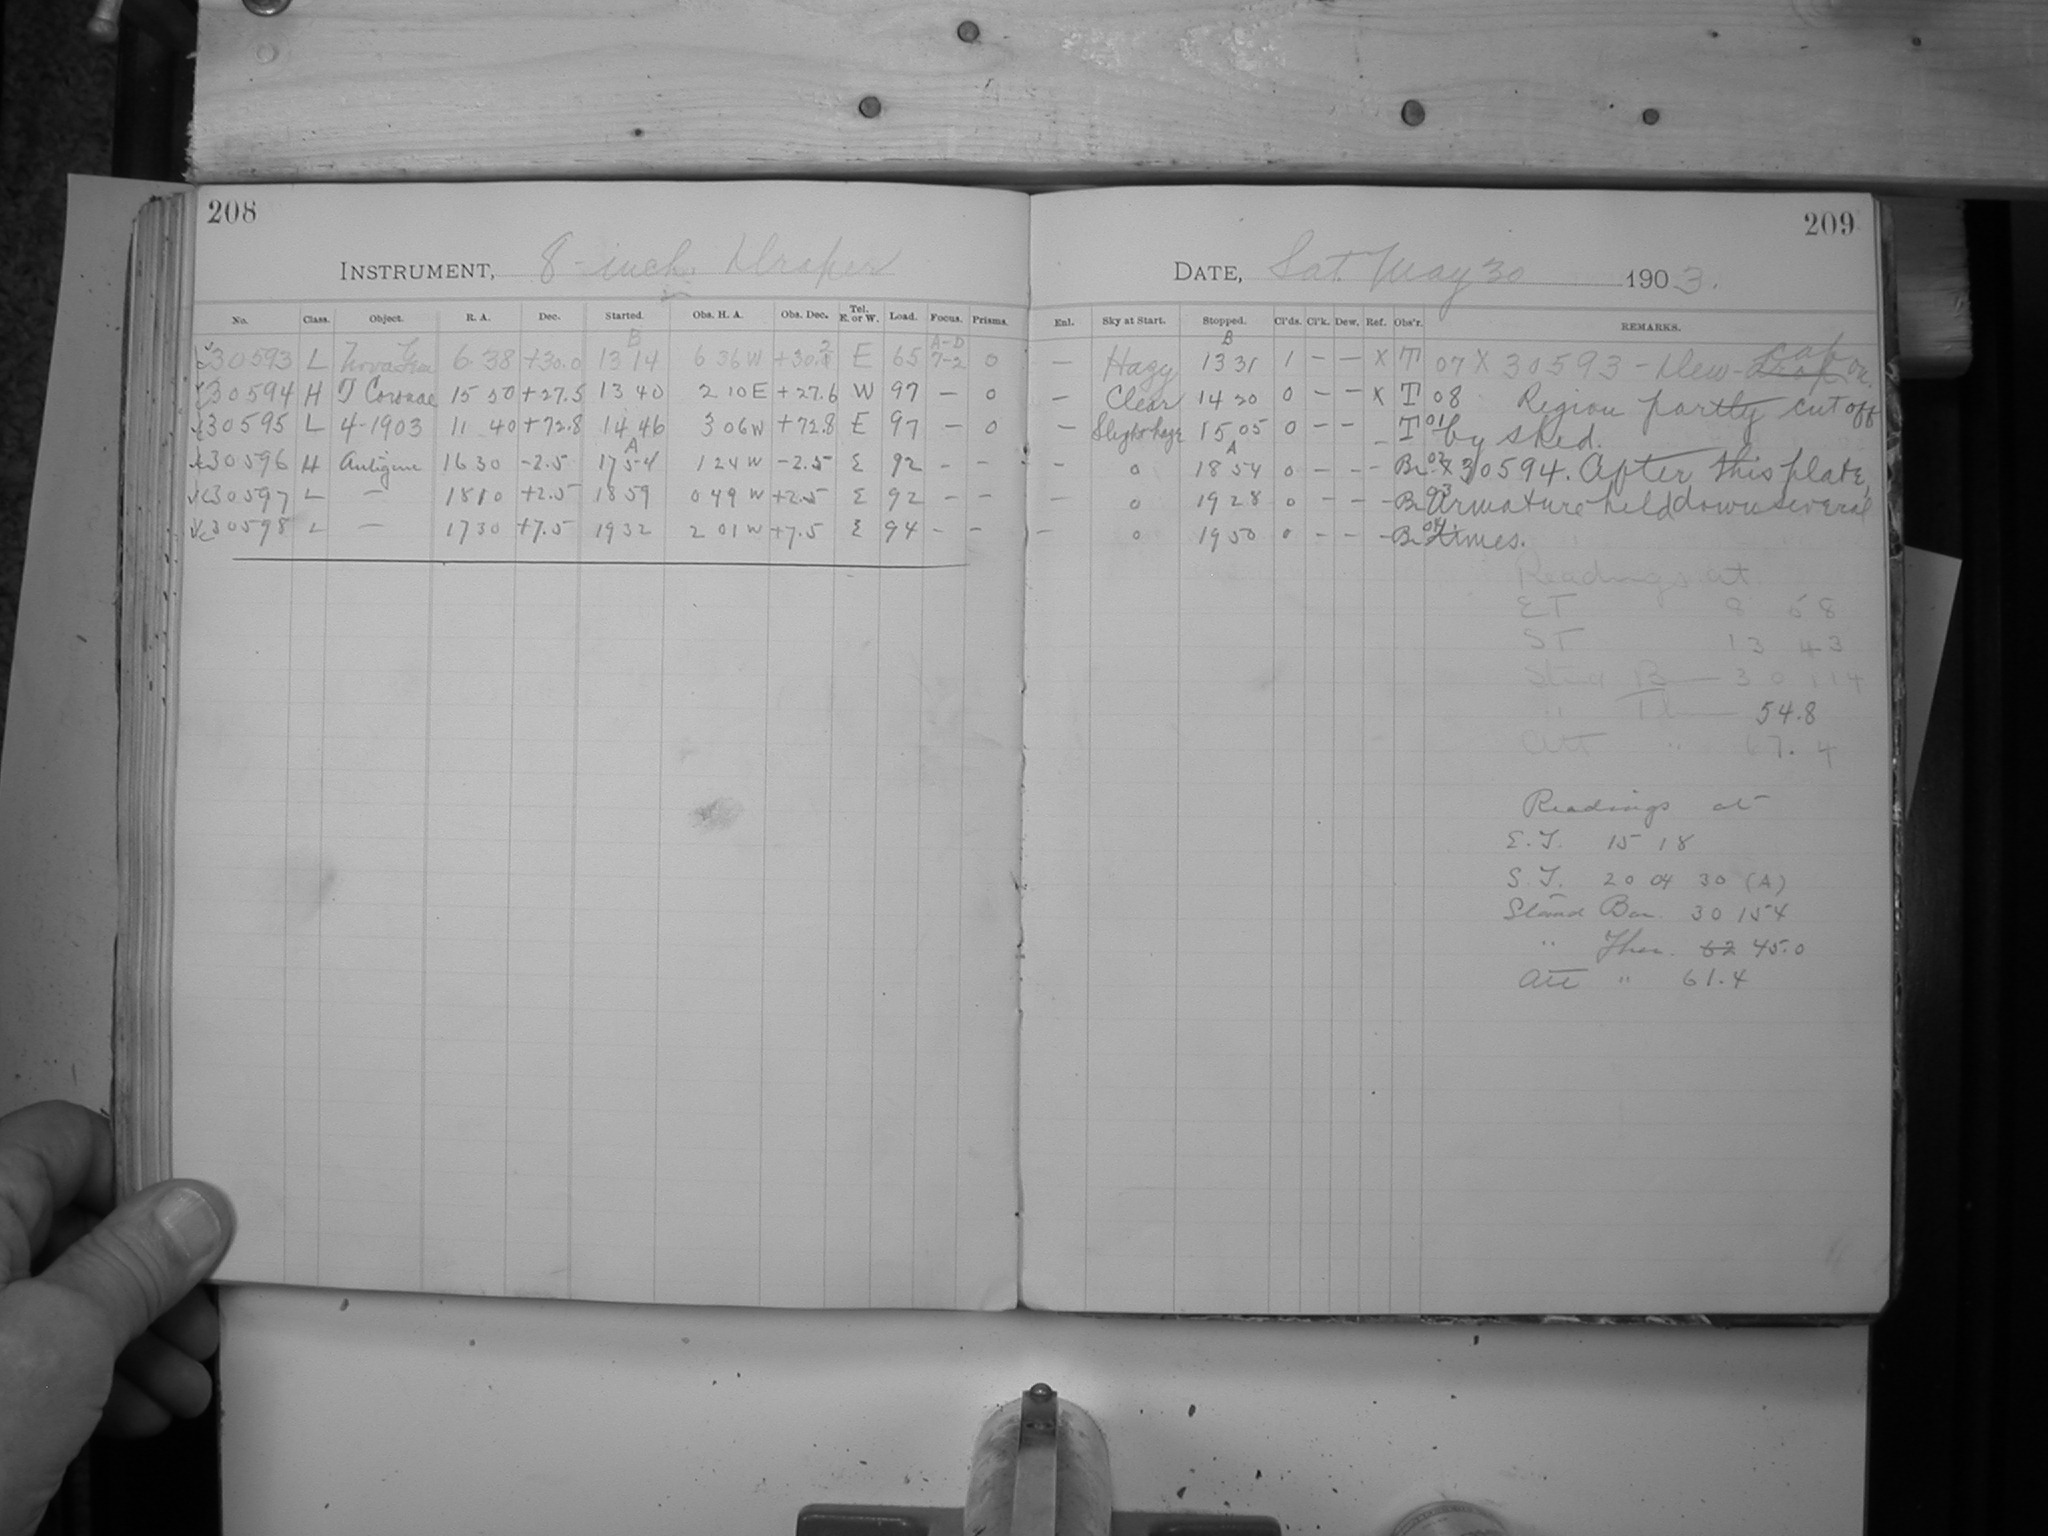 208
INSTRUMENT, 8-inch Draper
No. Class. Object. R. A. Dec. Started. Obs. H. A. Obs. Dec. Tel. E. or W. Load. Focus. Prisms.
B 2 A-D
30593 L Nova 6 38 +30.0 13 14 6 36 W E 65 7-2 0
30594 H T Coronae 15 50 +27.5 13 40 2 10 E +27.6 W 97 – 0
30595 L 4-1903 11 40 +72.8 14 46 3 06 W +72.8 E 97 – 0
A
30596 H Antigone 16 30 -2.5 17 54 1 24 W -2.5 E 92 – –
30597 L – 18 10 +2.5 18 59 0 49 W +2.5 E 92 – –
30598 L – 17 30 +7.5 19 32 2 01 W +7.5 E 94 – –
209
DATE, Sat. May 30 1903.
Enl. Sky at Start. Stopped. Cl'ds. Cl'k. Dew. Ref. Obs'r. REMARKS.
B
– Hazy 13 31 1 – – X T 07 X 30593 - Dew-cap on.
– Clear 14 20 0 – – X T 08 Region partly cut off
– Slight haze 15 05 0 – – T 01 by shed.
A
– 0 18 54 0 – – – Br 02 X 30594. After this plate,
– 0 19 28 0 – – – Br 03 armature held down several
– 0 19 50 0 – – – Br 04 times.
Readings at
ET 8 58
ST 13 43
Stand B 30 114
" Th 54.8
Att " 67.4
Readings at
E.T. 15 18
S.T. 20 04 30 (A)
Stand Bar. 30 154
" Ther. 62 45.0
Att " 61.4